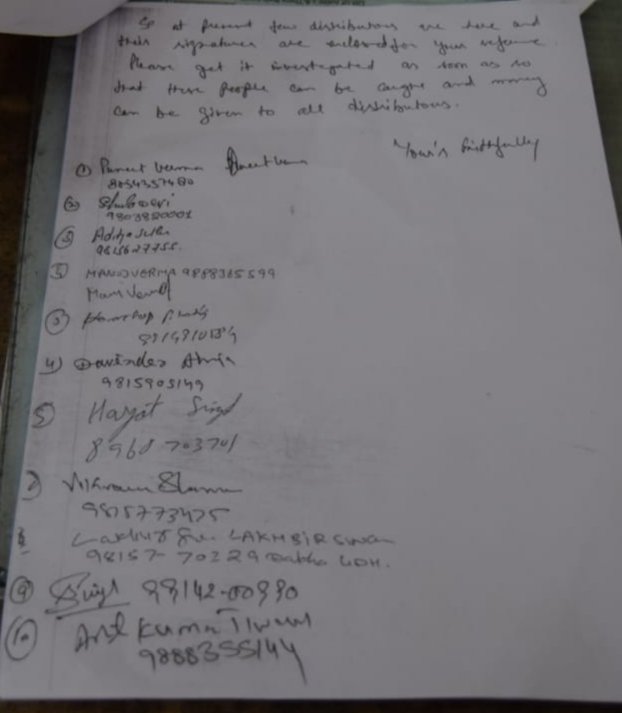 So at present few distributors are here and
their signatures are enclosed for your reference
Please get it investegated as soon as so
that these people can be caught and money
can be given to all distributors.
Your's faithfully
① Puneet Verma
8054357480
②
9803820001
③ Aditya
9815627755
MANOJ VERMA 9888365599
③
4) Davinder
9815905149
5) Harjot Singh
8968703701
Vikram Sharma
9815773475
LAKHBIR SINGH
98157-70229 LDH.
⑨ Singh 99142-00990
⑩ Anil Kumar Tiwari
9888355144